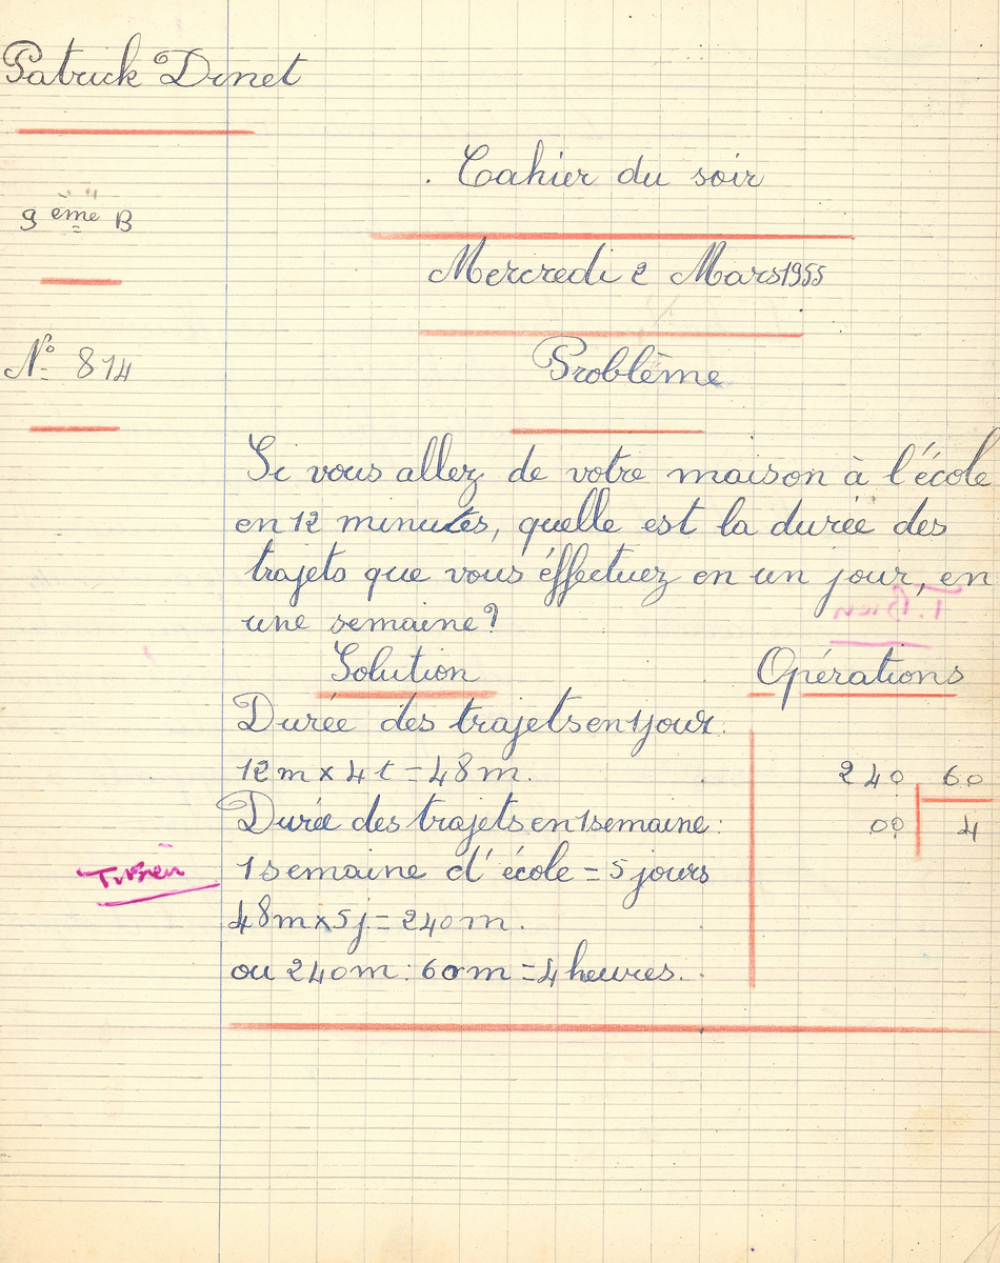 Patrick Dinet
Cahier du soir
9 ème B
Mercredi 2 Mars 1955
N° 814
Problème
Si vous allez de votre maison à l'école
en 12 minutes, quelle est la durée des
trajets que vous éffectuez en un jour, en
une semaine?
Solution
Opérations
Durée des trajets en 1 jour:
12 m x 4 t = 48 m.
240 60
Durée des trajets en 1 semaine:
00 4
T. Bien
1 semaine d'école = 5 jours
48 m x 5 j = 240 m.
ou 240 m : 60 m = 4 heures.